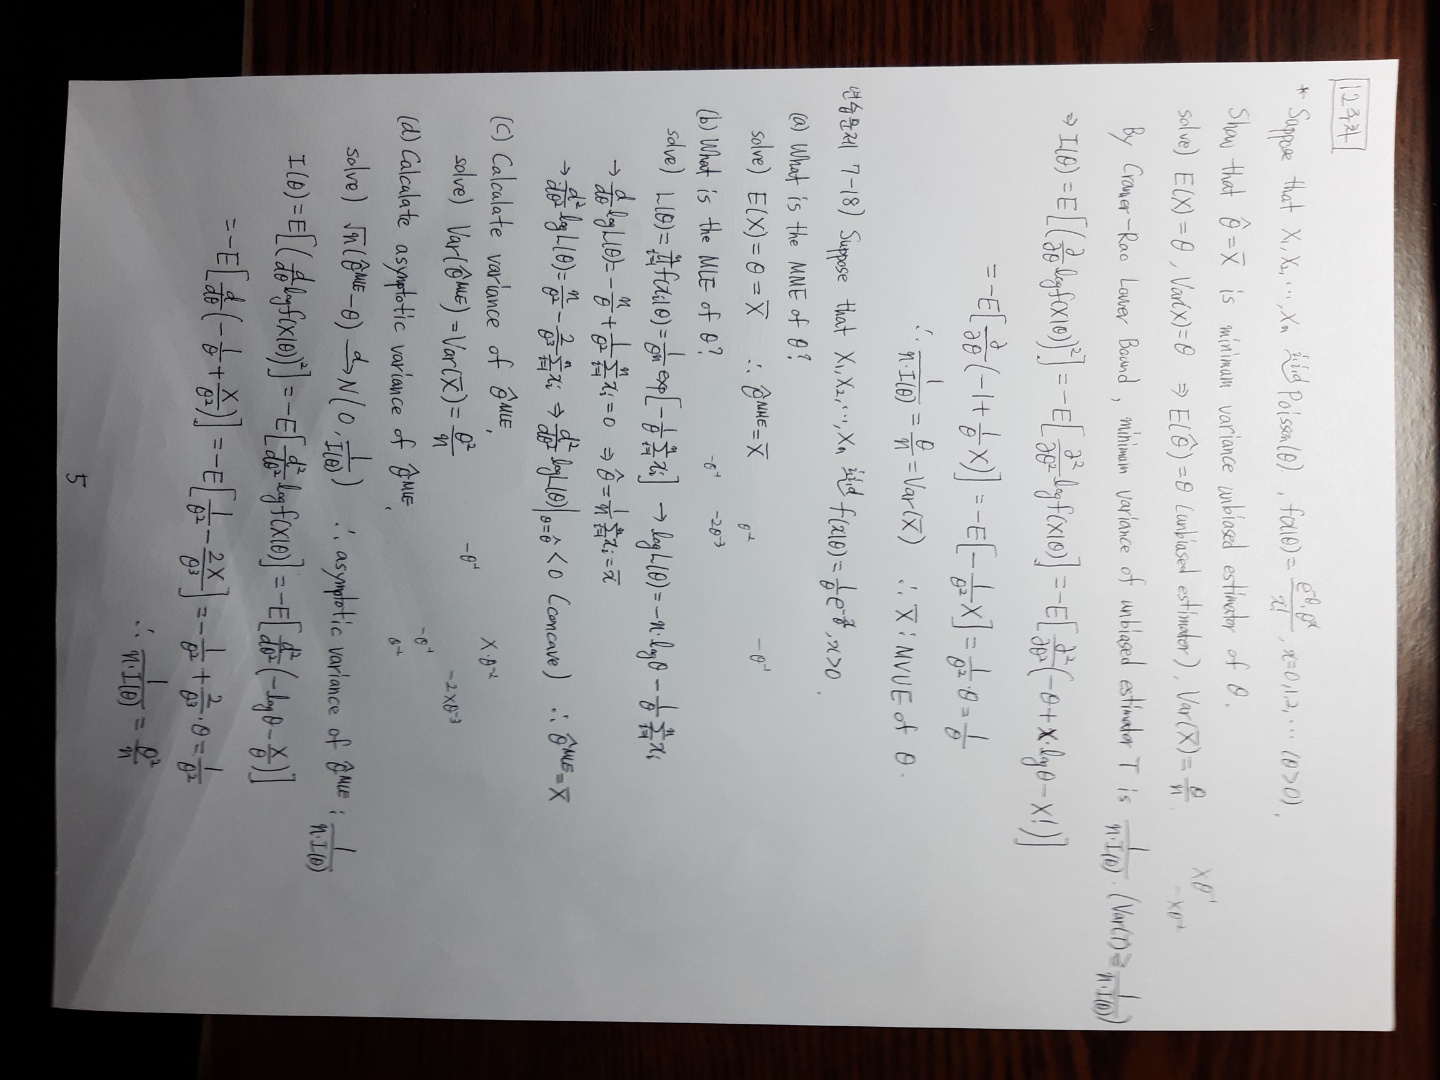 12주차
* Suppose that X₁, X₂, ⋯, Xₙ iid~ Poisson(θ), f(x|θ) = e^{-θ}·θ^x / x!, x=0,1,2,⋯ (θ>0).
Show that θ̂ = X̄ is minimum variance unbiased estimator of θ.
solve) E(X) = θ, Var(X) = θ ⇒ E(θ̂) = θ (unbiased estimator), Var(X̄) = θ/n.
xθ⁻¹
-xθ⁻²
By Cramer-Rao Lower Bound, minimum variance of unbiased estimator T is 1/(n·I(θ)). (Var(T) ≥ 1/(n·I(θ)))
⇒ I(θ) = E[(∂/∂θ log f(X|θ))²] = -E[∂²/∂θ² log f(X|θ)] = -E[∂²/∂θ² (-θ + X·logθ - X!)]
= -E[∂/∂θ (-1 + 1/θ X)] = -E[-1/θ² X] = 1/θ²·θ = 1/θ
∴ 1/(n·I(θ)) = θ/n = Var(X̄) ∴ X̄ : MVUE of θ.
연습문제 7-18) Suppose that X₁, X₂, ⋯, Xₙ iid~ f(x|θ) = 1/θ e^{-x/θ}, x>0.
(a) What is the MME of θ?
solve) E(X) = θ = X̄ ∴ θ̂^{MME} = X̄
θ⁻¹
-θ⁻²
(b) What is the MLE of θ?
-θ⁻¹
-2θ⁻³
solve) L(θ) = ∏_{i=1}^n f(xᵢ|θ) = 1/θⁿ exp[-1/θ Σ_{i=1}^n xᵢ] → log L(θ) = -n·logθ - 1/θ Σ_{i=1}^n xᵢ
→ d/dθ log L(θ) = -n/θ + 1/θ² Σ_{i=1}^n xᵢ = 0 ⇒ θ̂ = 1/n Σ_{i=1}^n xᵢ = x̄
→ d²/dθ² log L(θ) = n/θ² - 2/θ³ Σ_{i=1}^n xᵢ ⇒ d²/dθ² log L(θ)|_{θ=θ̂} < 0 (concave) ∴ θ̂^{MLE} = X̄
(c) Calculate variance of θ̂^{MLE}.
X·θ⁻²
-2Xθ⁻³
solve) Var(θ̂^{MLE}) = Var(X̄) = θ²/n
-θ⁻¹
-θ⁻¹
θ⁻²
(d) Calculate asymptotic variance of θ̂^{MLE}.
solve) √n(θ̂^{MLE} - θ) →d N(0, 1/I(θ)) ∴ asymptotic variance of θ̂^{MLE} : 1/(n·I(θ))
I(θ) = E[(d/dθ log f(X|θ))²] = -E[d²/dθ² log f(X|θ)] = -E[d²/dθ² (-logθ - X/θ)]
= -E[d/dθ (-1/θ + X/θ²)] = -E[1/θ² - 2X/θ³] = -1/θ² + 2/θ³·θ = 1/θ²
∴ 1/(n·I(θ)) = θ²/n
5